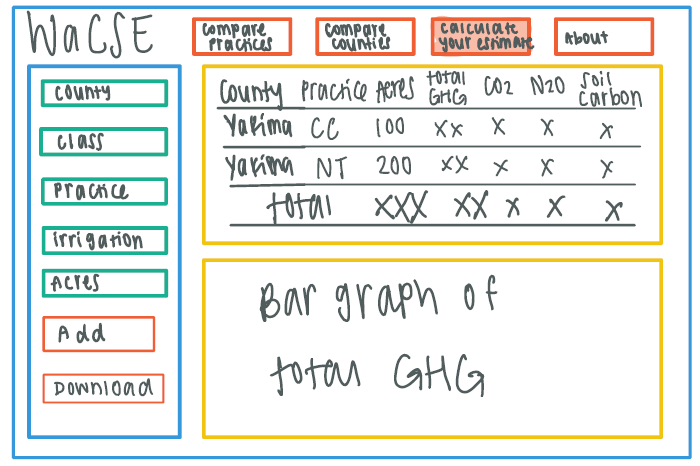 WaCSE
Compare
Practices
Compare
Counties
Calculate
your estimate
About
County
Class
Practice
irrigation
Acres
Add
Download
County Practice Acres total GHG CO2 N2O Soil Carbon
Yakima CC 100 xx x x x
Yakima NT 200 xx x x x
total XXX XX x x x
Bar graph of
total GHG